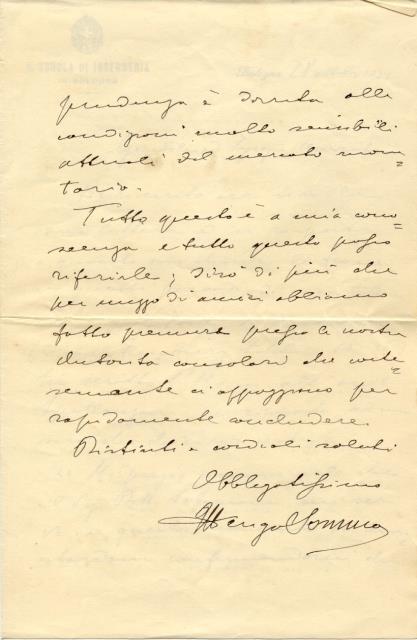 R. SCUOLA DI INGEGNERIA
BOLOGNA
prudenza è dovuta alle
condizioni molto sensibili
attuali del mercato mon=
tario.
Tutto questo è a mia cono=
scenza e tutto questo posso
riferirle; dirò di più che
per mezzo di amici abbiamo
fatto premura presso le nostre
Autorità consolari che corte=
semente ci appoggiano per
rapidamente concludere.
Distinti e cordiali saluti
Obbligatissimo